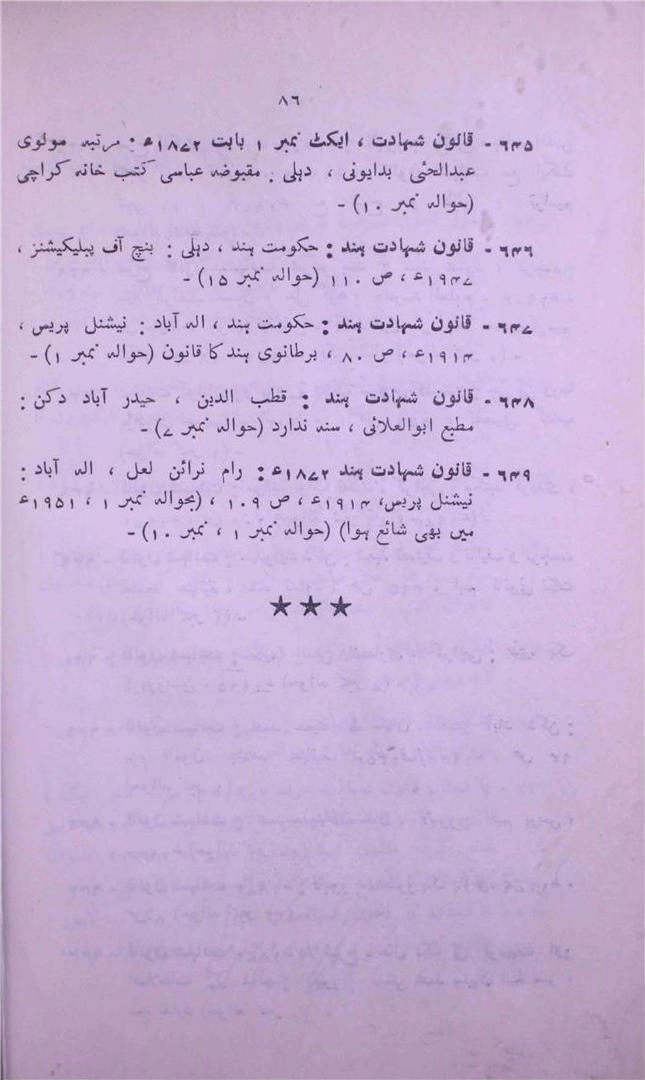 ۸۶
۶۴۵ - قانون شہادت ، ایکٹ نمبر ۱ بابت ۱۸۷۲ء : مرتبہ مولوی
عبدالحئی بدایونی ، دہلی : مقبوضہ عباسی کتب خانہ کراچی
(حوالہ نمبر ۱۰) -
۶۴۶ - قانون شہادت ہند : حکومت ہند ، دہلی : بنچ آف پبلیکیشنز ،
۱۹۴۷ء ، ص ۱۱۰ (حوالہ نمبر ۱۵) -
۶۴۷ - قانون شہادت ہند : حکومت ہند ، الہ آباد : نیشنل پریس ،
۱۹۱۴ء ، ص ۸۰ ، برطانوی ہند کا قانون (حوالہ نمبر ۱) -
۶۴۸ - قانون شہادت ہند : قطب الدین ، حیدر آباد دکن :
مطبع ابوالعلائی ، سنہ ندارد (حوالہ نمبر ۷) -
۶۴۹ - قانون شہادت ہند ۱۸۷۲ء : رام نرائن لعل ، الہ آباد :
نیشنل پریس، ۱۹۱۴ء ، ص ۱۰۹ ، (بحوالہ نمبر ۱ ، ۱۹۵۱ء
میں بھی شائع ہوا) (حوالہ نمبر ۱ ، نمبر ۱۰) -
★★★